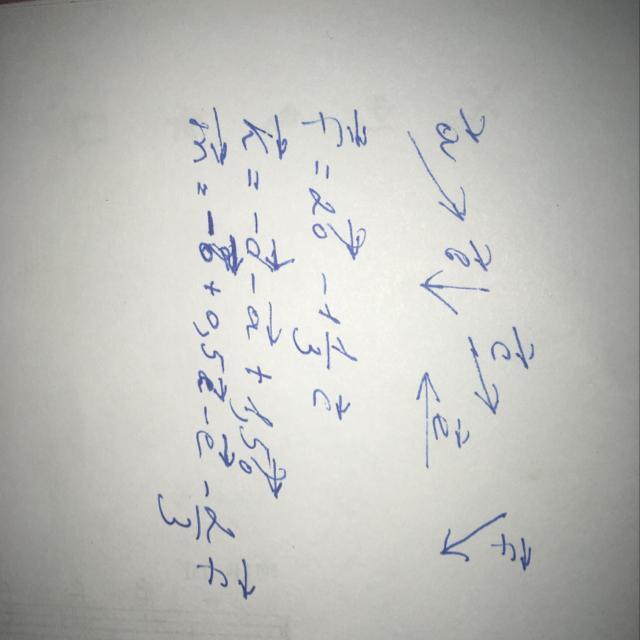 a⃗ c⃗ e⃗ f⃗
r⃗ = 2b⃗ - 1 1/3 c⃗
k⃗ = -d⃗ - a⃗ + 1,5b⃗
m⃗ = + 0,5 - e⃗ - 2/3 f⃗